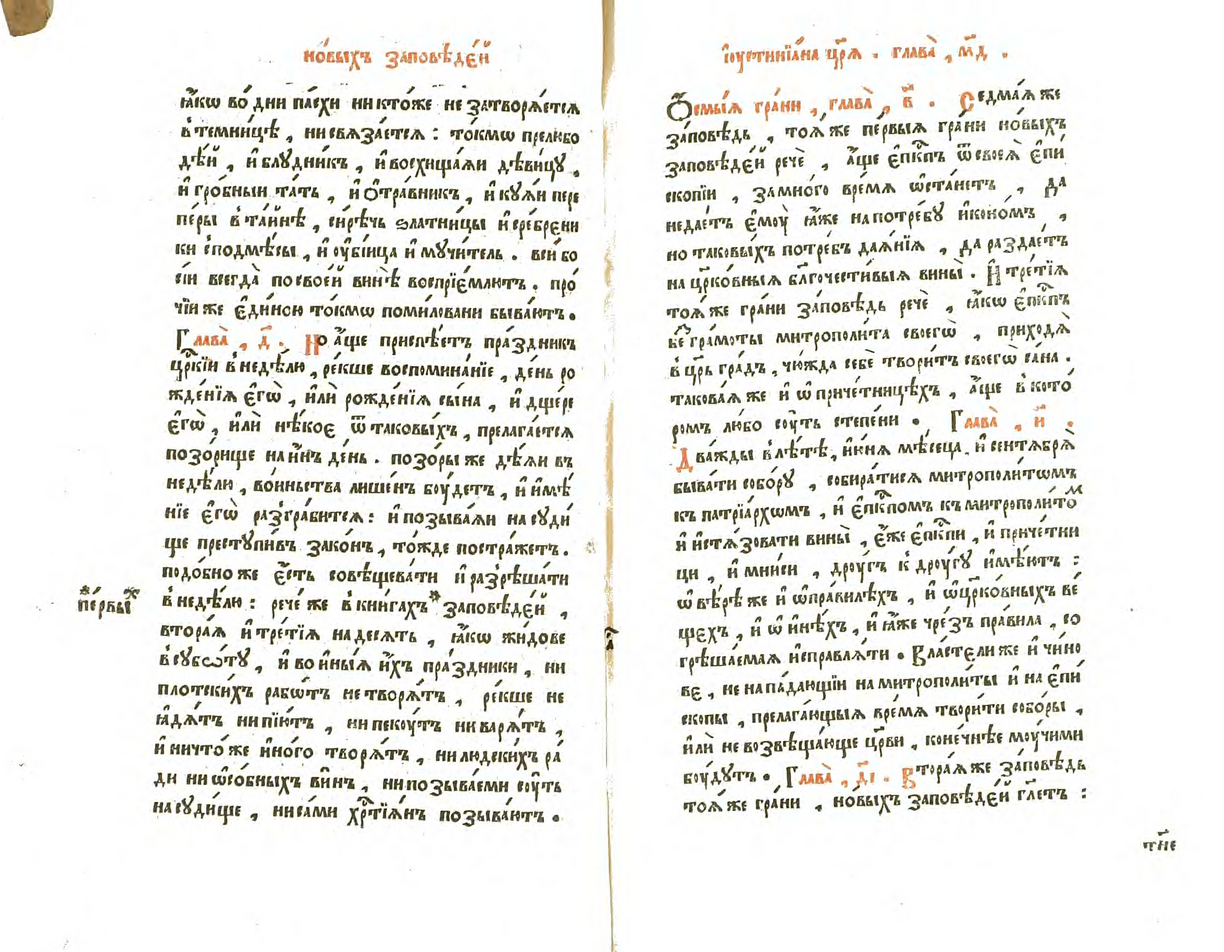 но́выхъ заповѣде́й
ꙗ҆́кѡ во́ дни па́схи никто́же не затворѧ́етсѧ
в̾темни́цѣ , нисвѧ́заетсѧ : то́кмѡ прелюбо
дѣ́й , и҆ блу́дникъ , и҆ восхища́ѧи дѣви́цу ,
и҆ гро́бныи та́ть , и҆ ѻ҆тра́вникъ , и҆ кꙋѧ́и пере
пе́ры в̾та́йнѣ , си́рѣчь ѕла́тницы и҆ сре́брени
ки с̾подмѣ́сы , и҆ ᲂу҆бі́ица и҆ мꙋчи́тель . вси́ бо
сі́и всегда̀ посвое́й винѣ̀ воспрїе́млютъ . про́
чїи же є҆ди́ною то́кмѡ поми́ловани быва́ютъ .
Глава̀ , д҃ . Но а҆́ще приспѣ́етъ пра́здникъ
цр҃кїи в̾недѣ́лю , ре́кше воспомина́нїе , де́нь ро
жде́нїѧ є҆гѡ̀ , и҆лѝ рожде́нїѧ сы́на , и҆ дще́ре
є҆гѡ̀ , и҆лѝ нѣ́кое ѿ таковы́хъ , прелага́етсѧ
позо́рище на и҆́нъ де́нь . позо́ры же дѣ́ѧи въ
недѣ́лю , во́иньства лише́нъ бꙋ́детъ , и҆ и҆мѣ́
нїе є҆гѡ̀ раз̾гра́битсѧ : и҆ позыва́ѧи на сꙋди́
ще престꙋпи́въ зако́нъ , то́жде постра́жетъ .
подо́бно же є҆́сть совѣщева́ти и҆ раз̾рѣша́ти
*пе́рвы́хъ
в̾недѣ́лю : рече́ же в̾кни́гахъ* за́повѣде́й ,
втора́ѧ и҆ тре́тїѧ на́десѧть , ꙗ҆́кѡ жи́дове
в̾сꙋбѡ́тꙋ , и҆ во и҆ны́ѧ и҆́хъ пра́здники , ни
пло́тскихъ рабѡ́тъ не творѧ́тъ , ре́кше не
ꙗ҆дѧ́тъ ни пїю́тъ , ни пекꙋ́тъ ни варѧ́тъ ,
и҆ ничто́ же и҆́ного творѧ́тъ , ни людски́хъ ра́
ди ни ѡ҆со́бныхъ ви́нъ , ни позыва́еми сꙋ́ть
на сꙋди́ще , ни са́ми хрⷭ҇тїѧ́нъ позыва́ютъ .
і҆ᲂустинїа́на цр҃ѧ . глава̀ , м҃д .
Ѻ҆смы́ѧ гра́ни , глава̀ , в҃ . Седма́ѧ же
за́повѣдь , тоѧ́ же пе́рвыѧ гра́ни но́выхъ
за́повѣдей речѐ , а҆́ще є҆пⷭ҇кпъ ѿ своеѧ̀ є҆пи
скопі́и , за мно́го вре́мѧ ѡ҆ста́нетъ , да
не дае́тъ є҆мꙋ̀ ꙗ҆́же на потре́бꙋ и҆коно́мъ ,
но таковы́хъ потре́бъ даѧ́нїѧ , да раздае́тъ
на цр҃ко́вныѧ бл҃гочести́выѧ вины̀ . И҆ тре́тїѧ
тоѧ́ же гра́ни за́повѣдь речѐ , ꙗ҆́кѡ є҆пⷭ҇кпъ
без̾ гра́моты митрополи́та своегѡ̀ , приходѧ̀
в̾ цр҃ь гра́дъ , чю́жда себѐ твори́тъ своегѡ̀ са́на .
такова́ѧ же и҆ ѡ҆ приче́тницѣхъ , а҆́ще в̾ кото́
ромъ лю́бо сꙋ́ть сте́пени . Глава̀ , и҃ .
Два́жды в̾ лѣ́тѣ , и҆ю́нѧ мѣ́сѧца , и҆ сентѧбрѧ̀
быва́ти собо́рꙋ , собира́тисѧ митрополи́тѡмъ
къ патрїа́рхѡмъ , и҆ є҆пⷭ҇кпомъ къ митрополи́тоⷨ
и҆ и҆стѧзова́ти вины̀ , є҆́же є҆пⷭ҇кпи , и҆ приче́тни
цы , и҆ мни́си , дрꙋ́гъ к̾ дрꙋ́гꙋ и҆мѣ́ютъ :
ѡ҆ вѣ́рѣ же и҆ ѡ҆ пра́вилѣхъ , и҆ ѡ҆ цр҃ко́вныхъ ве́
щехъ , и҆ ѡ҆ и҆нѣ́хъ , и҆ ꙗ҆́же чре́зъ пра́вила , со
грѣша́емаѧ и҆справлѧ́ти . Власте́ли же и҆ чи́но
ве , не напа́дающїи на митрополи́ты и҆ на є҆пи́
скопы , прелага́ющыѧ вре́мѧ твори́ти собо́ры ,
и҆лѝ не возвѣща́юще цр҃ви , коне́чнѣе мꙋ́чими
бꙋ́дꙋтъ . Глава̀ , д҃і . Втора́ѧ же за́повѣдь
тоѧ́ же гра́ни , но́выхъ за́повѣдей гл҃етъ :